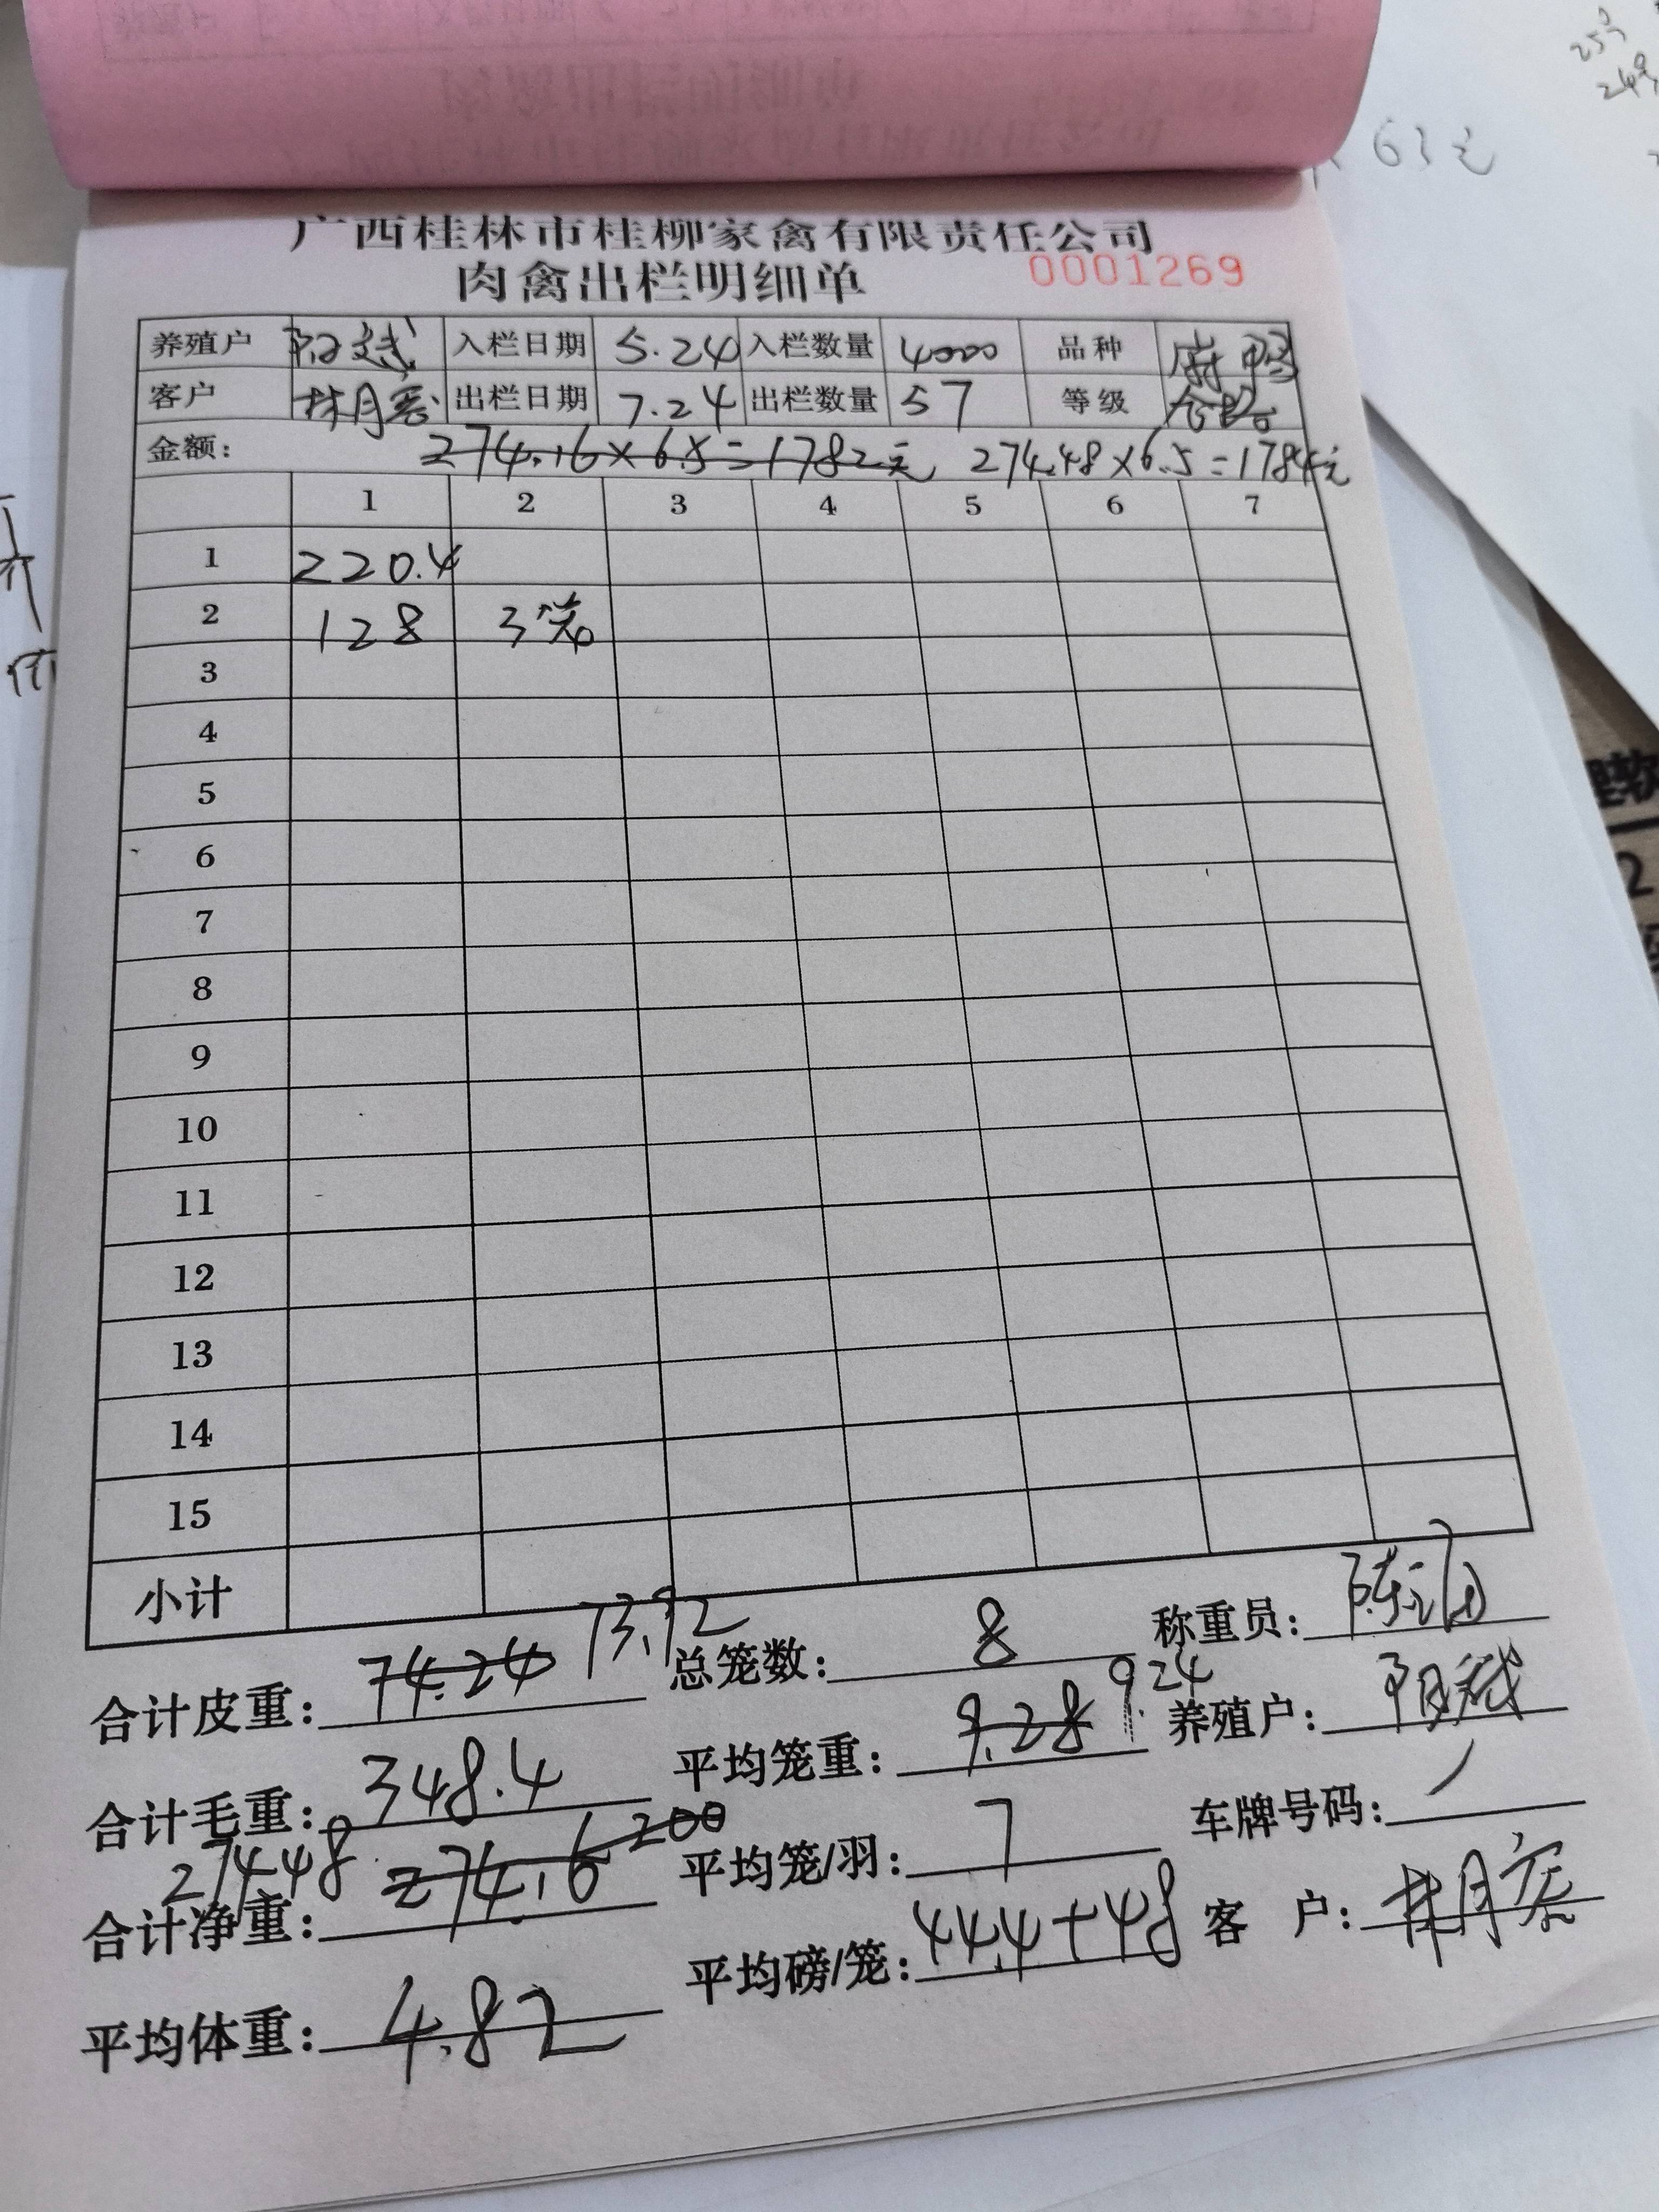 253
249
63元
广西桂林市桂柳家禽有限责任公司
肉禽出栏明细单 0001269
养殖户 阳斌 入栏日期 5.24 入栏数量 4000 品种 麻鸭
客户 林月 出栏日期 7.24 出栏数量 57 等级 合格
金额: 274.16×6.5=1782元 274.48×6.5=1784元
1 2 3 4 5 6 7
1 220.4
2 128 3笼
3
4
5
6
7
8
9
10
11
12
13
14
15
小计
合计皮重: 74.24 73.92 总笼数: 8 称重员: 陈
合计毛重: 348.4 平均笼重: 9.28 9.24 养殖户: 阳斌
合计净重: 274.48 274.16 200 平均笼/羽: 7 车牌号码: /
平均体重: 4.82 平均磅/笼: 44.4+48 客 户: 林月